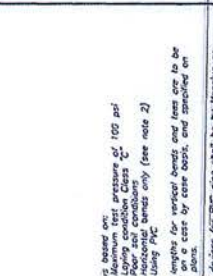 is based on:
Maximum test pressure of 100 psi
Laying condition Class "C"
Poor soil conditions
Horizontal bends only (see note 2)
Using PVC
lengths for vertical bends and tees are to be
on a case by case basis, and specified on
plans.